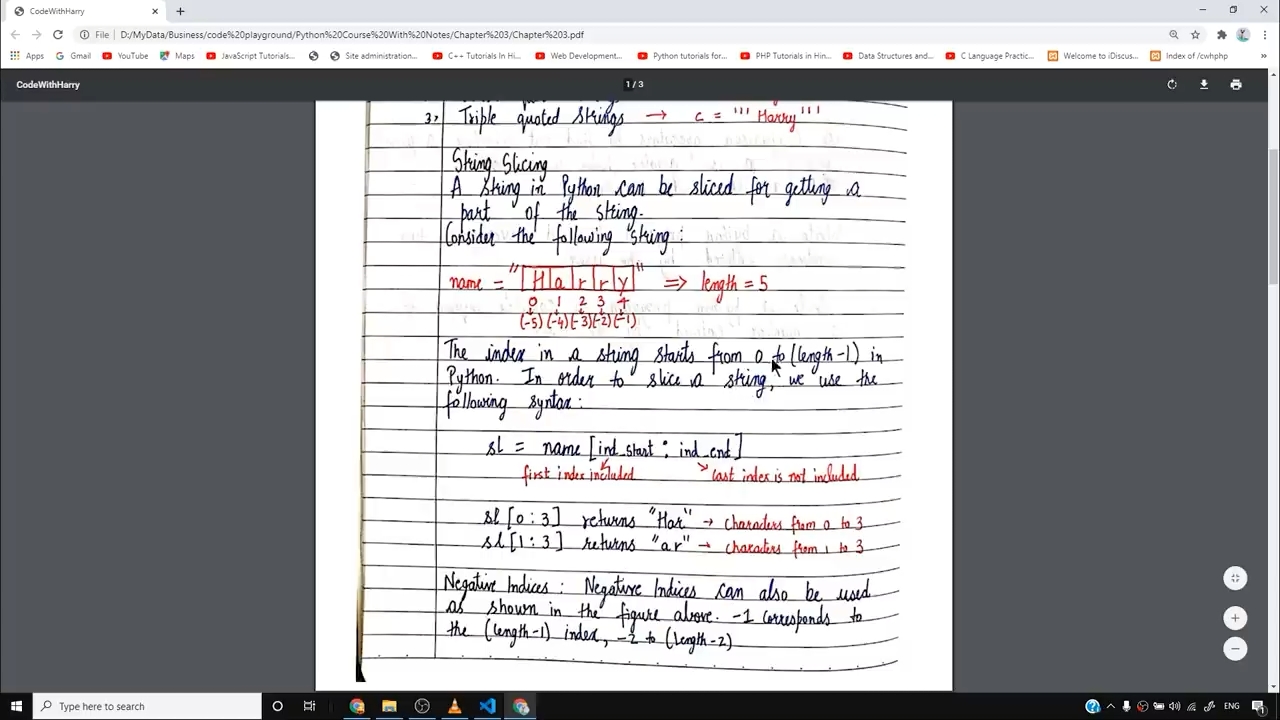 CodeWithHarry
File | D:/MyData/Business/code%20playground/Python%20Course%20With%20Notes/Chapter%203/Chapter%203.pdf
Apps Gmail YouTube Maps JavaScript Tutorials... Site administration... C++ Tutorials In Hi... Web Development... Python tutorials for... PHP Tutorials in Hin... Data Structures and... C Language Practic... Welcome to iDiscus... Index of /cwhphp
CodeWithHarry 1 / 3
3, Triple quoted strings → c = ''' Harry '''
String Slicing
A string in Python can be sliced for getting a
part of the string.
Consider the following string :
name = "Harry" ⇒ length = 5
0 1 2 3 4
(-5) (-4) (-3) (-2) (-1)
The index in a string starts from 0 to (length-1) in
Python. In order to slice a string, we use the
following syntax :
sl = name [ind_start : ind_end]
first index included last index is not included
sl [0 : 3] returns "Har" → characters from 0 to 3
sl [1 : 3] returns "ar" → characters from 1 to 3
Negative Indices : Negative Indices can also be used
as shown in the figure above. -1 corresponds to
the (length-1) index, -2 to (length-2)
Type here to search
ENG